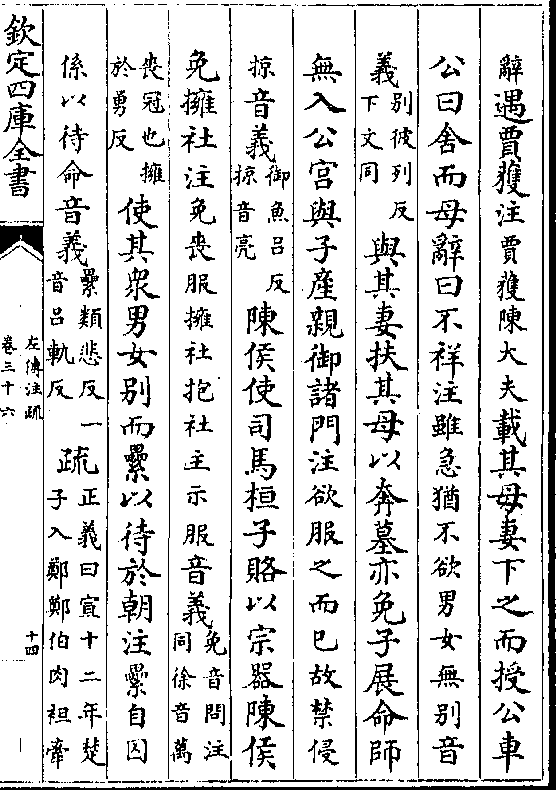 辭遇賈獲注賈獲陳大夫載其母妻下之而授公車
公曰舍而母辭曰不祥注雖急猶不欲男女無別音
義別彼列反下文同與其妻扶其母以奔墓亦免子展命師
無入公宮與子產親御諸門注欲服之而已故禁侵
掠音義御魚呂反掠音亮陳侯使司馬桓子賂以宗器陳侯
免擁社注免喪服擁社抱社主示服音義免音問注同徐音萬
喪冠也擁於勇反使其衆男女別而纍以待於朝注纍自囚
係以待命音義纍類悲反一音呂軌反疏正義曰宣十二年楚子入鄭鄭伯肉袒牽
欽定四庫全書
左傳注疏
卷三十六
十四